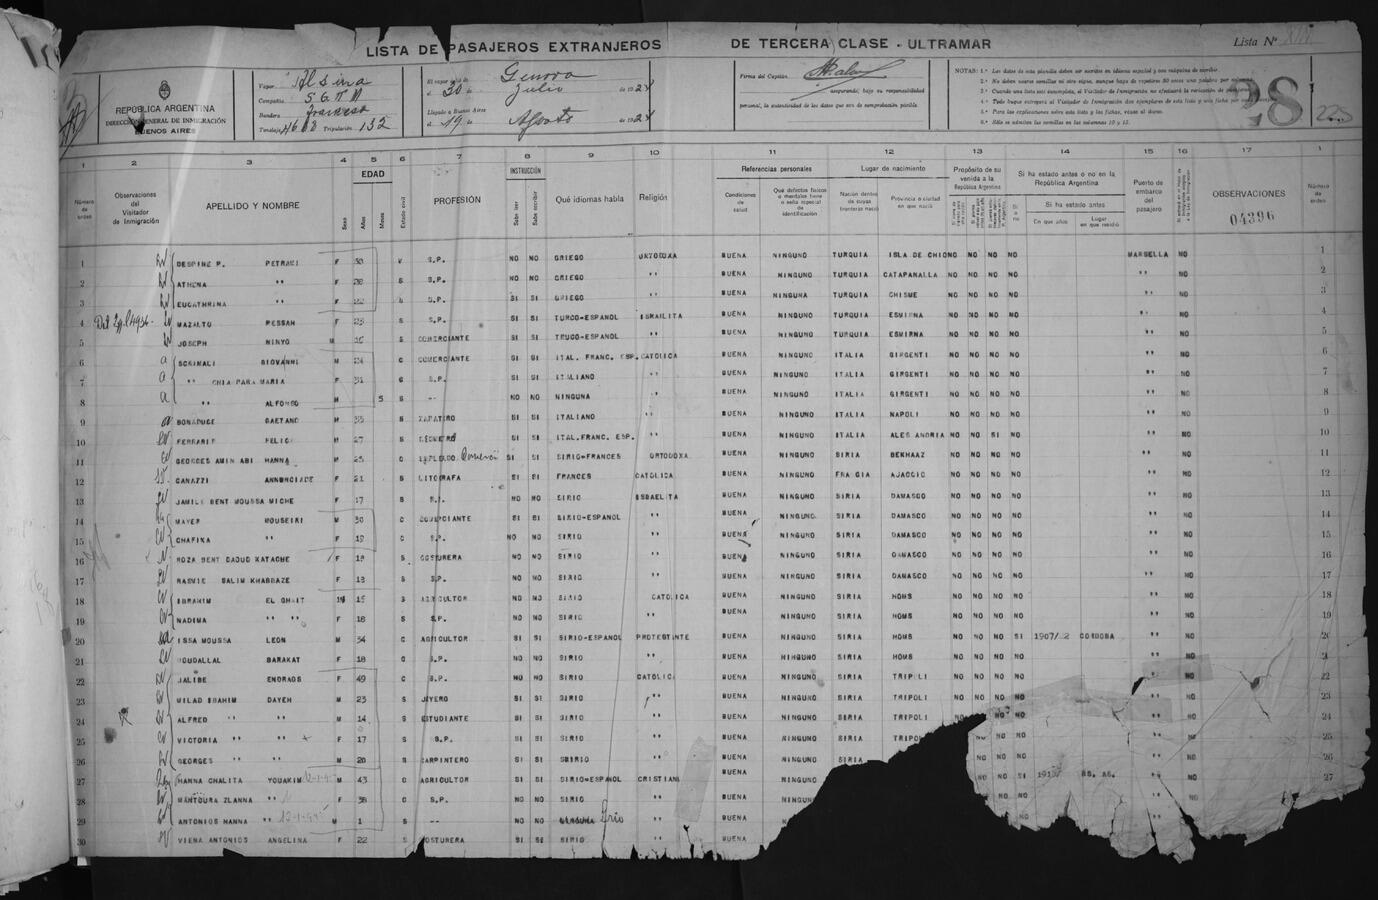 LISTA DE PASAJEROS EXTRANJEROS DE TERCERA CLASE - ULTRAMAR
Lista Nº
REPÚBLICA ARGENTINA
DIRECCIÓN GENERAL DE INMIGRACIÓN
BUENOS AIRES
Vapor Alsina
Compañía S G T M
Bandera francesa
Tonelaje 4608 Tripulación 132
El vapor salió de Genova
el 30 de Julio de 1924
Llegado a Buenos Aires
el 19 de Agosto de 1924
Firma del Capitán
asegurando, bajo su responsabilidad
personal, la autenticidad de los datos que son de comprobación posible.
28
225
1 2 3 4 5 6 7 8 9 10 11 12 13 14 15 16 17 1
Número de orden
Observaciones del Visitador de Inmigración
APELLIDO Y NOMBRE
Sexo
EDAD
Años
Meses
Estado civil
PROFESIÓN
INSTRUCCIÓN
Sabe leer
Sabe escribir
Qué idiomas habla
Religión
Referencias personales
Condiciones de salud
Qué defectos físicos o mentales tiene o seña especial de identificación
Lugar de nacimiento
Nación dentro de cuyas fronteras nació
Provincia o ciudad en que nació
Propósito de su venida a la República Argentina
Si ha estado antes o no en la República Argentina
Sí o no
Si ha estado antes
En que años
Lugar en que residió
Puerto de embarco del pasajero
OBSERVACIONES
04396
Número de orden
1 DESPINE P. PETRAKI F 50 V S.P. NO NO GRIEGO ORTODOXA BUENA NINGUNO TURQUIA ISLA DE CHIO NO NO NO NO MARSELLA NO 1
2 ATHENA " F S S.P. NO NO GRIEGO " BUENA NINGUNO TURQUIA CATAPANALLA NO NO NO NO " NO 2
3 EUGATHRINA " F S.P. SI SI GRIEGO " BUENA NINGUNA TURQUIA CHISME NO NO NO NO " NO 3
4 MAZALTO PESSAH F 25 S S.P. SI SI TURCO-ESPANOL ISRAILITA BUENA NINGUNO TURQUIA ESMIRNA NO NO NO NO " NO 4
5 JOSEPH NINYO M 16 S COMERCIANTE SI SI TRUCO-ESPANOL " BUENA NINGUNO TURQUIA ESMIRNA NO NO NO NO " NO 5
6 GIOVANNI M 34 C COMERCIANTE SI SI ITAL. FRANC. ESP. CATOLICA BUENA NINGUNO ITALIA GIRGENTI NO NO NO NO " NO 6
7 " CHIAPARA MARIA F 31 C S.P. SI SI ITALIANO " BUENA NINGUNO ITALIA GIRGENTI NO NO NO NO " NO 7
8 " ALFONSO M 5 S -- NO NO NINGUNA " BUENA NINGUNO ITALIA GIRGENTI NO NO NO NO " NO 8
9 BONADUCE GAETANO M 35 S ZAPATERO SI SI ITALIANO " BUENA NINGUNO ITALIA NAPOLI NO NO NO NO " NO 9
10 FERRARIS FELICE M 27 S SI SI ITAL. FRANC. ESP. " BUENA NINGUNO ITALIA ALES ANDRIA NO NO SI NO " NO 10
11 GEORGES AMIN ABI HANNA M 25 C EMPLEADO Comercio SI SI SIRIO-FRANCES ORTODOXA BUENA NINGUNO SIRIA BEKHAAZ NO NO NO NO " NO 11
12 CANAZZI ANNONCIADE F 21 S LITOGRAFA SI SI FRANCES CATOLICA BUENA NINGUNO FRA GIA AJACCIO NO NO NO NO " NO 12
13 JAMILE BENT MOUSSA MICHE F 17 S S.P. NO NO SIRIO ISRAELITA BUENA NINGUNO SIRIA DAMASCO NO NO NO NO " NO 13
14 MAYER MOUSEIRI M 30 C COMERCIANTE SI SI SIRIO-ESPANOL " BUENA NINGUNO SIRIA DAMASCO NO NO NO NO " NO 14
15 CHAFIKA " F 19 C S.P. NO NO SIRIO " BUENA NINGUNO SIRIA DAMASCO NO NO NO NO " NO 15
16 ROZA BENT DAOUD KATACHE F 18 S COSTURERA NO NO SIRIO " BUENA NINGUNO SIRIA DAMASCO NO NO NO NO " NO 16
17 RASMIE SALIM KHABBAZE F 18 S S.P. NO NO SIRIO " BUENA NINGUNO SIRIA DAMASCO NO NO NO NO " NO 17
18 IBRAHIM EL GHAIT M 15 S AGRICULTOR NO NO SIRIO CATOLICA BUENA NINGUNO SIRIA HOMS NO NO NO NO " NO 18
19 NADIMA " " F 18 S S.P. NO NO SIRIO " BUENA NINGUNO SIRIA HOMS NO NO NO NO " NO 19
20 ISSA MOUSSA LEON M 34 C AGRICULTOR SI SI SIRIO-ESPANOL PROTESTANTE BUENA NINGUNO SIRIA HOMS NO NO NO SI 1907/ 2 CORDOBA " NO 20
21 BARAKAT F 18 C S.P. NO NO SIRIO " BUENA NINGUNO SIRIA HOMS NO NO NO NO " NO
22 JALIBE ENDRAOS F 49 C S.P. NO NO SIRIO CATOLICA BUENA NINGUNO SIRIA TRIPOLI NO NO NO NO " NO 22
23 MILAD IBRAHIM DAYEH M 23 S JOYERO SI SI SIRIO " BUENA NINGUNO SIRIA TRIPOLI NO NO NO NO " NO 23
24 ALFRED " " M 14 S ESTUDIANTE SI SI SIRIO " BUENA NINGUNO SIRIA TRIPOLI NO NO NO " NO 24
25 VICTORIA " " F 17 S S.P. SI SI SIRIO " BUENA NINGUNO SIRIA TRIPOL NO NO NO " NO 25
26 GEORGES " " M 20 S CARPINTERO SI SI SIRIO " BUENA NINGUNO SIRIA NO NO " NO 26
27 HANNA CHALITA YOUAKIM M 43 C AGRICULTOR SI SI SIRIO-ESPANOL CRISTIANA BUENA NINGUNO NO NO SI BS. AS. " NO 27
28 MANTOURA ZLANNA " F 38 C S.P. NO NO SIRIO " BUENA NINGUN NO NO " NO
29 ANTONIOS HANNA " M 1 S -- NO NO NINGUNA Sirio " BUENA
30 VIENA ANTONIOS ANGELINA F 22 COSTURERA SI SI SIRIO " BUENA